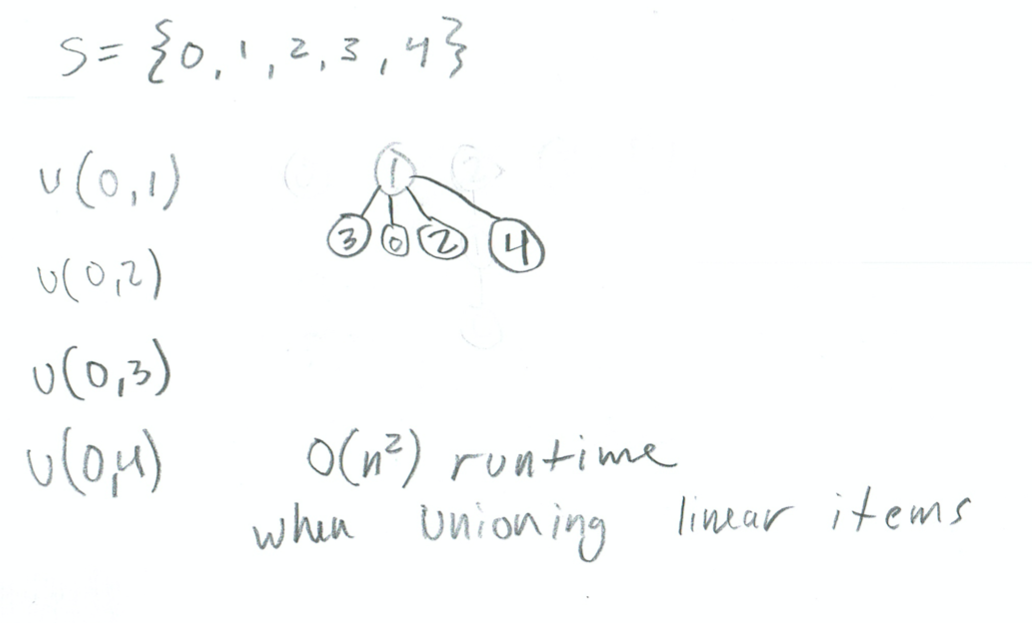 S = {0, 1, 2, 3, 4}
U(0,1)
1
3 0 2 4
U(0,2)
U(0,3)
U(0,4)
O(n²) runtime
when unioning linear items